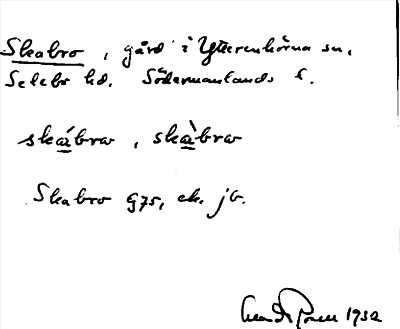 Skabro, gård i Ytterenhörna sn,
Selebo hd. Södermanlands l.
skábro, skàbro
Skabro 975, ek. jb.
1932